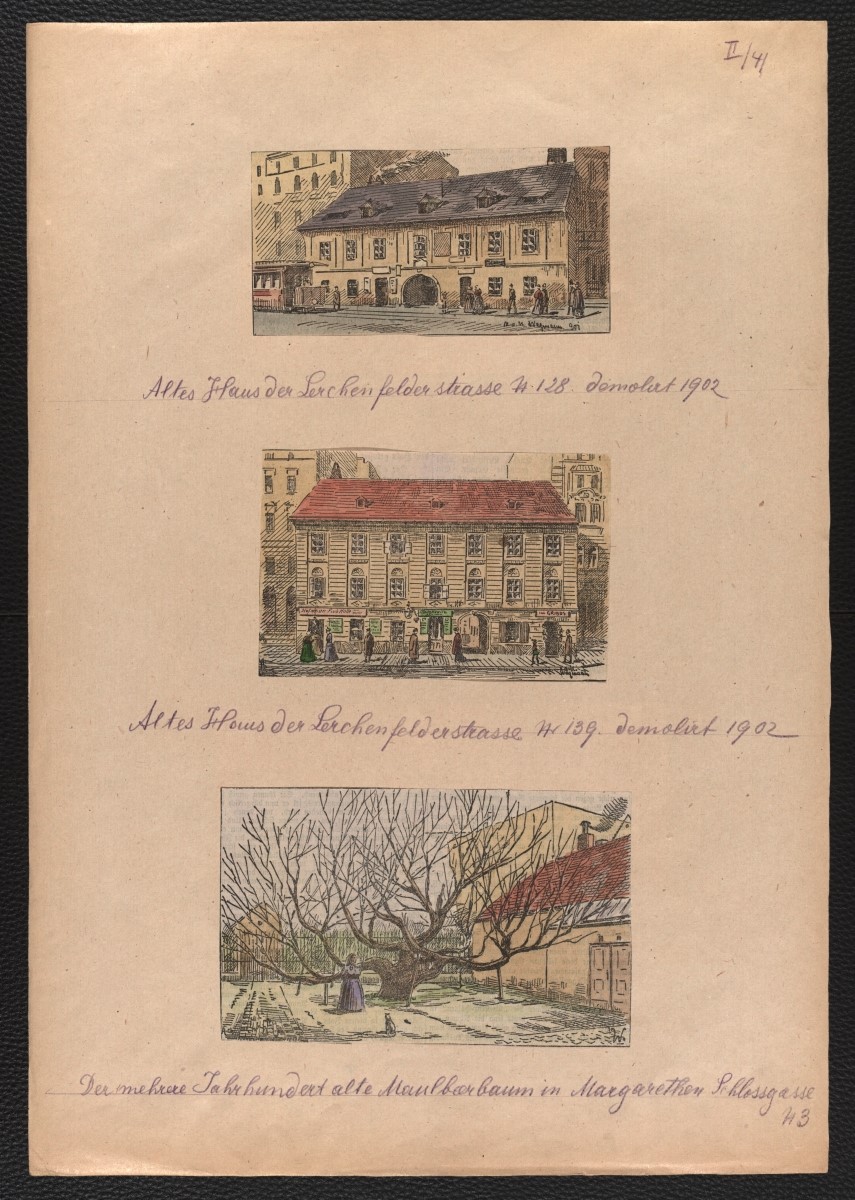 II/41
Altes Haus der Lerchenfelderstrasse N. 128. demolirt 1902
Altes Haus der Lerchenfelderstrasse N. 139. demolirt 1902
Der mehrere Jahrhundert alte Maulbærbaum in Margarethen Schlossgasse
N 3